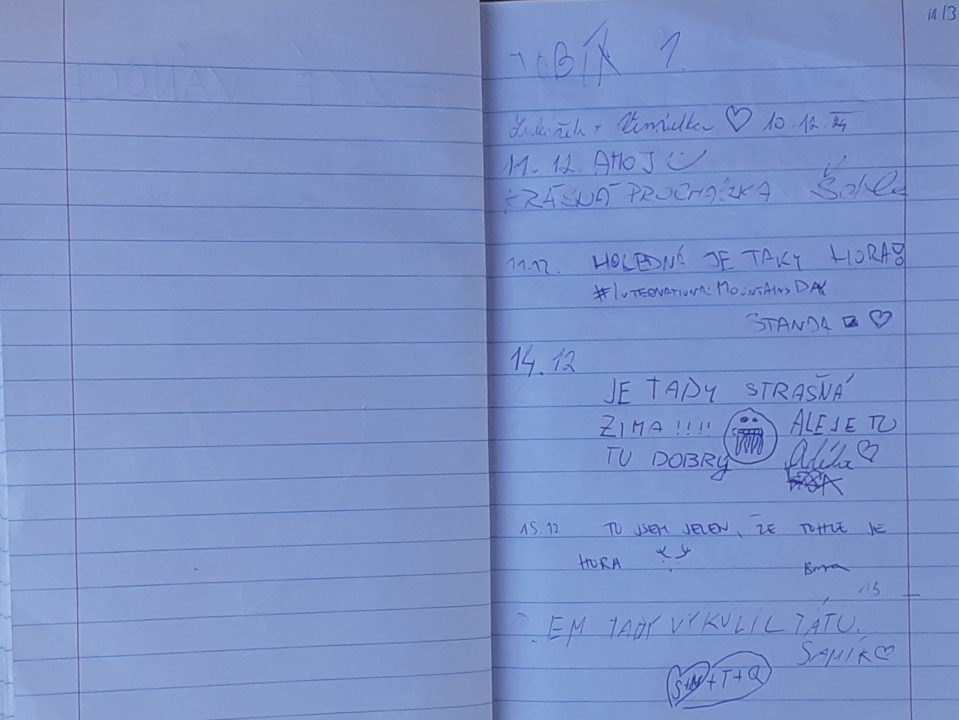 VÁNOCE
TOBÍK 1.
+ ♡ 10.12.24
11.12. AHOJ
KRÁSNÁ PROCHÁZKA
11.12. HOLEDNÁ JE TAKY HORA!
#INTERNATIONAL MOUNTAINS DAY
STANDA ♡
14.12
JE TADY STRAŠNÁ
ZIMA !!!! ALE JE TU
TU DOBRÝ Adéla ♡
15.12 TU JSEM JELEN, ŽE TOHLE JE
HORA
EM TADY VYKULIL TÁTU.
SAMÍK ♡
+T+Q